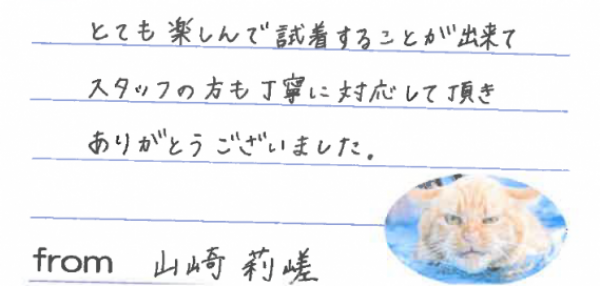 とても楽しんで試着することが出来て
スタッフの方も丁寧に対応して頂き
ありがとうございました。
from 山崎 莉嵯